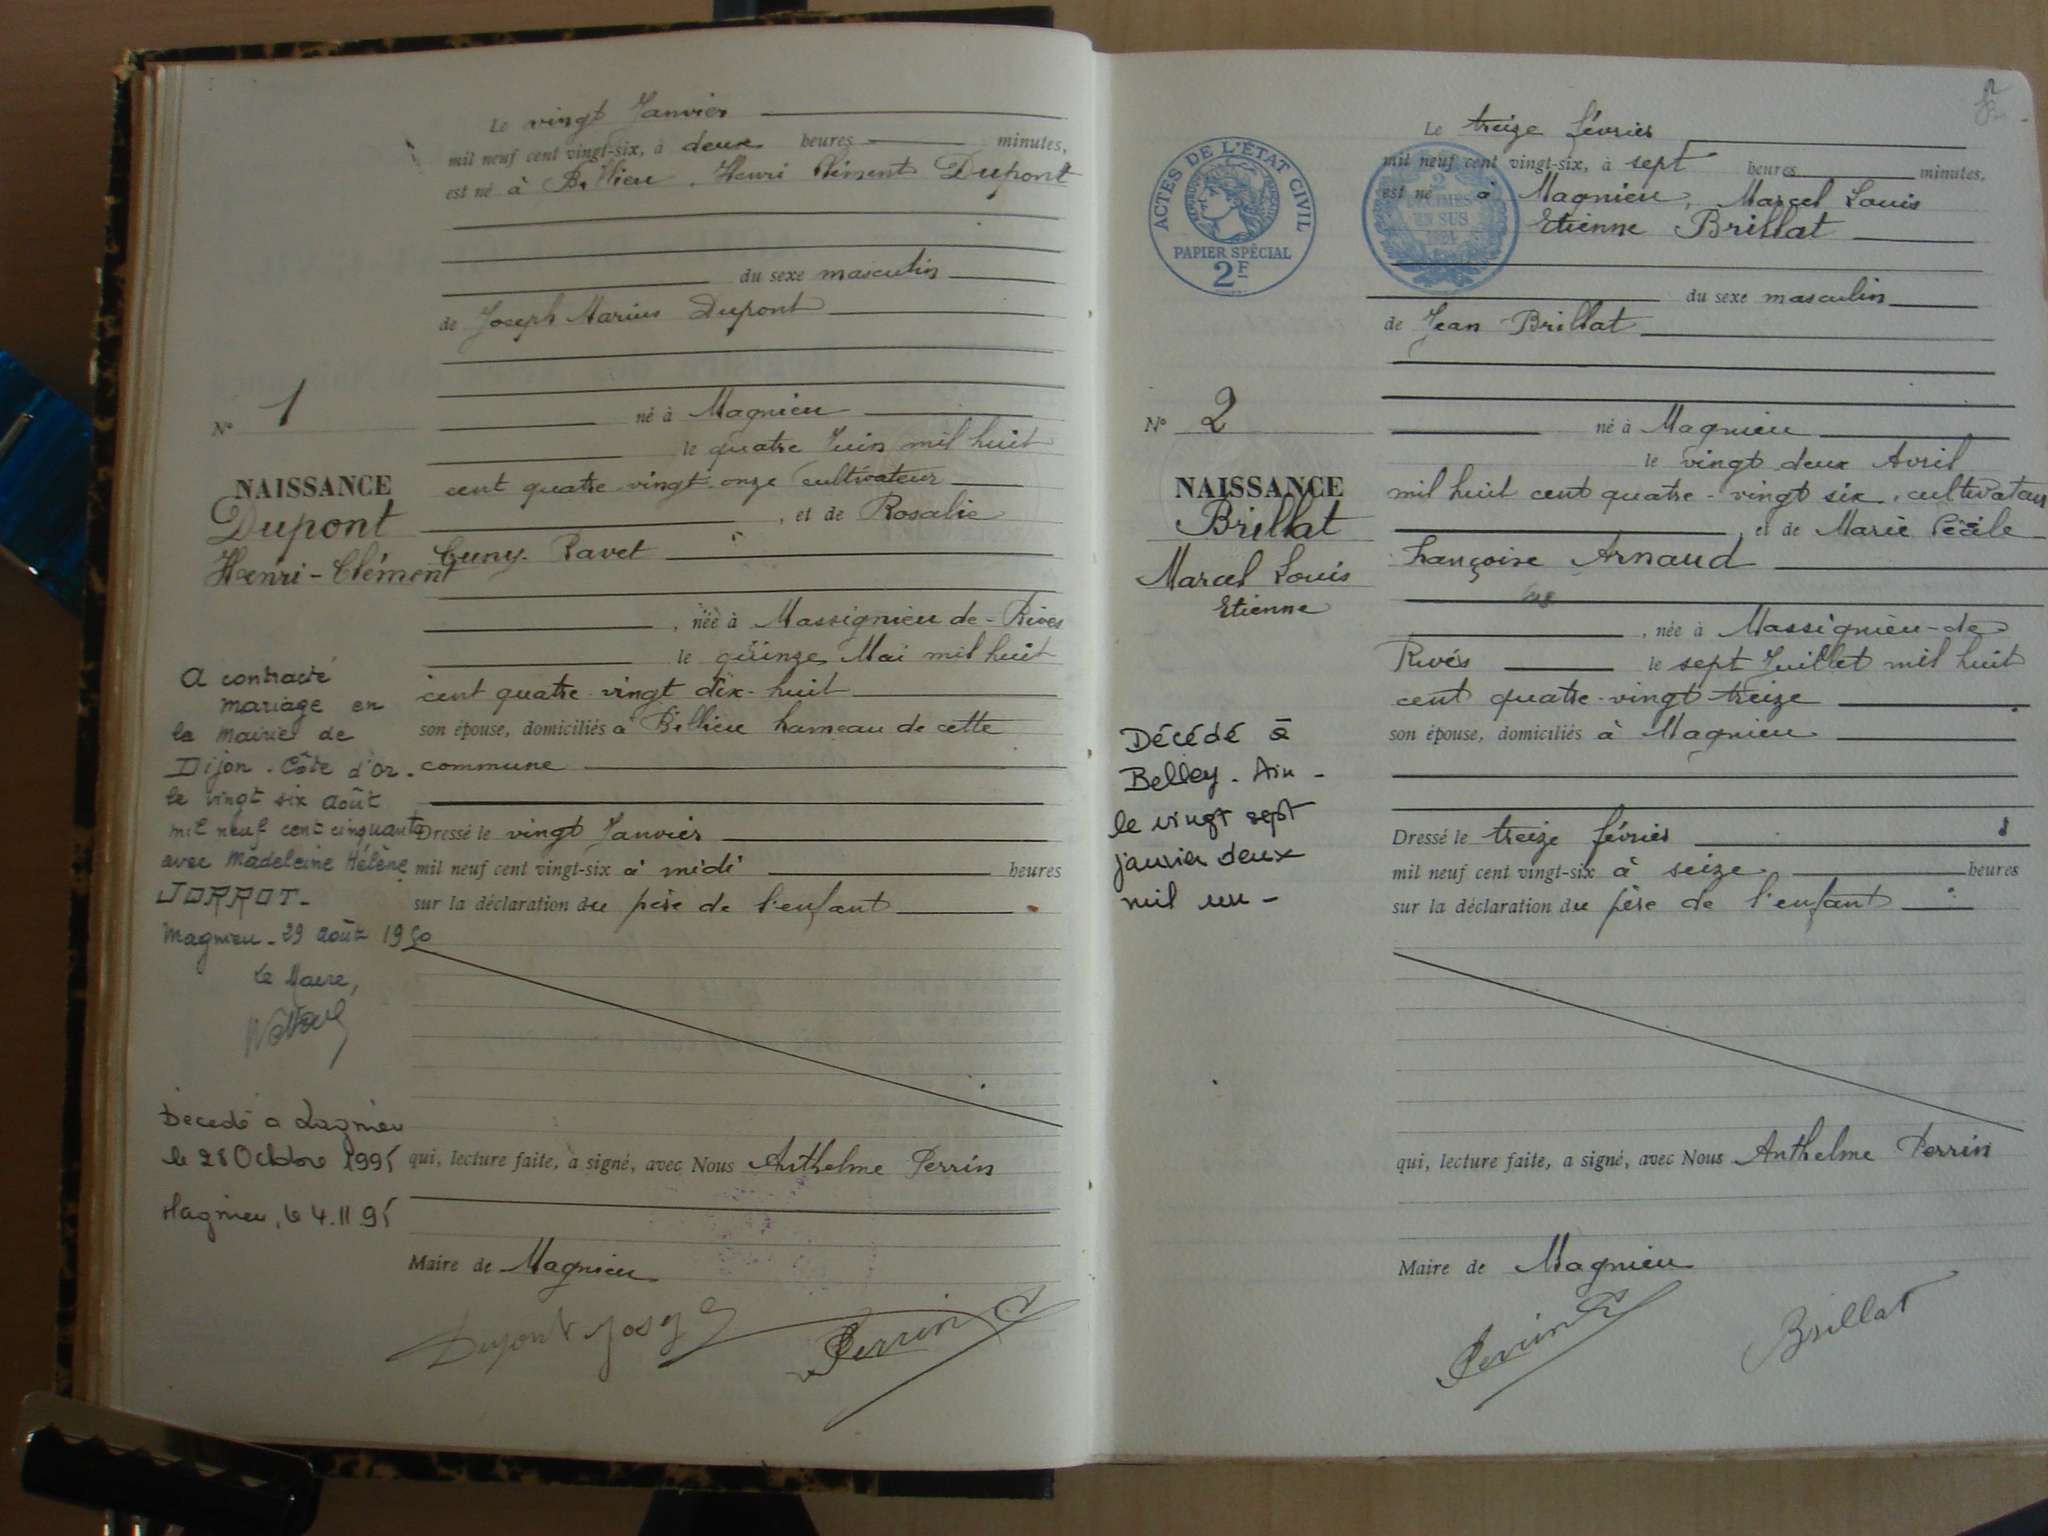 Le vingt Janvier
mil neuf cent vingt-six, à deux heures minutes,
est né à Billieu, Henri Clément Dupont
du sexe masculin
de Joseph Marius Dupont
né à Magnieu
le quatre Juin mil huit
cent quatre vingt onze cultivateur
, et de Rosalie
Cuny-Pavet
, née à Massignieu-de-Rives
le quinze Mai mil huit
cent quatre-vingt dix-huit
son épouse, domiciliés à Billieu hameau de cette
commune
Dressé le vingt Janvier
mil neuf cent vingt-six à midi heures
sur la déclaration du père de l'enfant
qui, lecture faite, a signé, avec Nous Anthelme Perrin
Maire de Magnieu
Dupont Josep
Perrin
N° 1
NAISSANCE
Dupont
Henri-Clément
A contracté
mariage en
la mairie de
Dijon - Côte d'Or -
le vingt six août
mil neuf cent cinquante
avec Madeleine Hélène
JORROT-
Magnieu - 29 août 1950
Le Maire,
Décédé a Lagnieu
le 28 Octobre 1995
Magnieu, le 4.11.95
2
ACTES DE L'ÉTAT CIVIL
PAPIER SPÉCIAL
2F
2
DÉCIMES
EN SUS
Le treize février
mil neuf cent vingt-six, à sept heures minutes,
est né à Magnieu, Marcel Louis
Etienne Brillat
du sexe masculin
de Jean Brillat
né à Magnieu
le vingt deux Avril
mil huit cent quatre-vingt six, cultivateur
, et de Marie Cécile
Françoise Arnaud
, née à Massignieu-de
Rives le sept Juillet mil huit
cent quatre-vingt treize
son épouse, domiciliés à Magnieu
Dressé le treize février
mil neuf cent vingt-six à seize heures
sur la déclaration du père de l'enfant
qui, lecture faite, a signé, avec Nous Anthelme Perrin
Maire de Magnieu
Perrin
Brillat
N° 2
NAISSANCE
Brillat
Marcel Louis
Etienne
Décédé à
Belley - Ain -
le vingt sept
janvier deux
mil un -